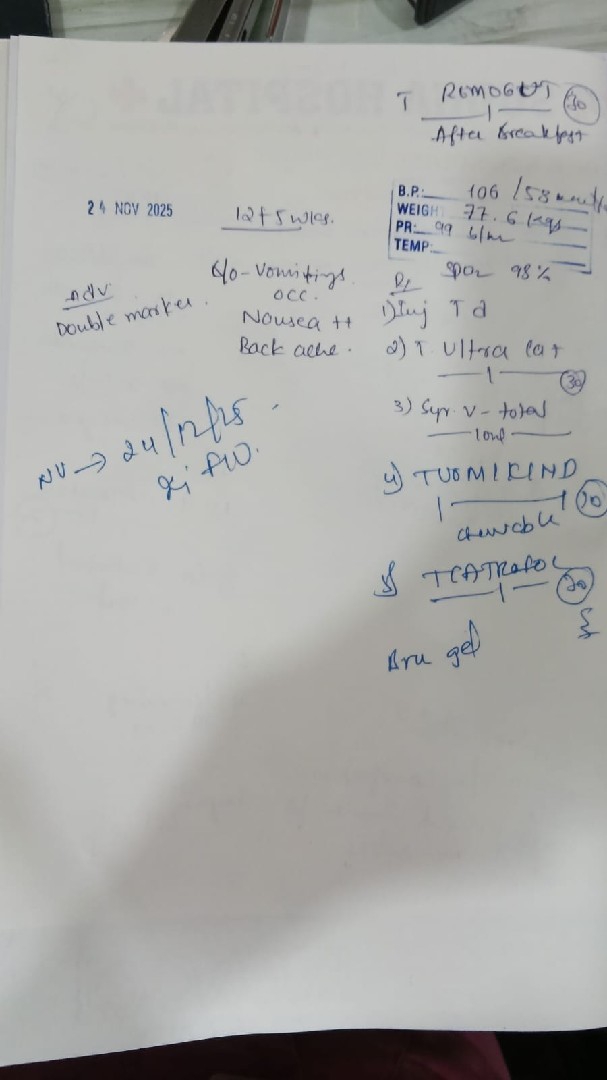 T REMOGUT 30
1
After Breakfast
24 NOV 2025
12+5 wks.
B.P.: 106 / 58
WEIGH 77.6 kgs
PR: 99 b/m
TEMP:
SPO2 98%
adv
Double marker.
c/o - Vomitings.
occ.
Nausea ++
Back ache.
Rx
1) Inj Td
2) T Ultra
1 30
3) Syr. V - total
10ml
4)
1 1
chewable
5)
1
Bru gel
NV → 24/12/25